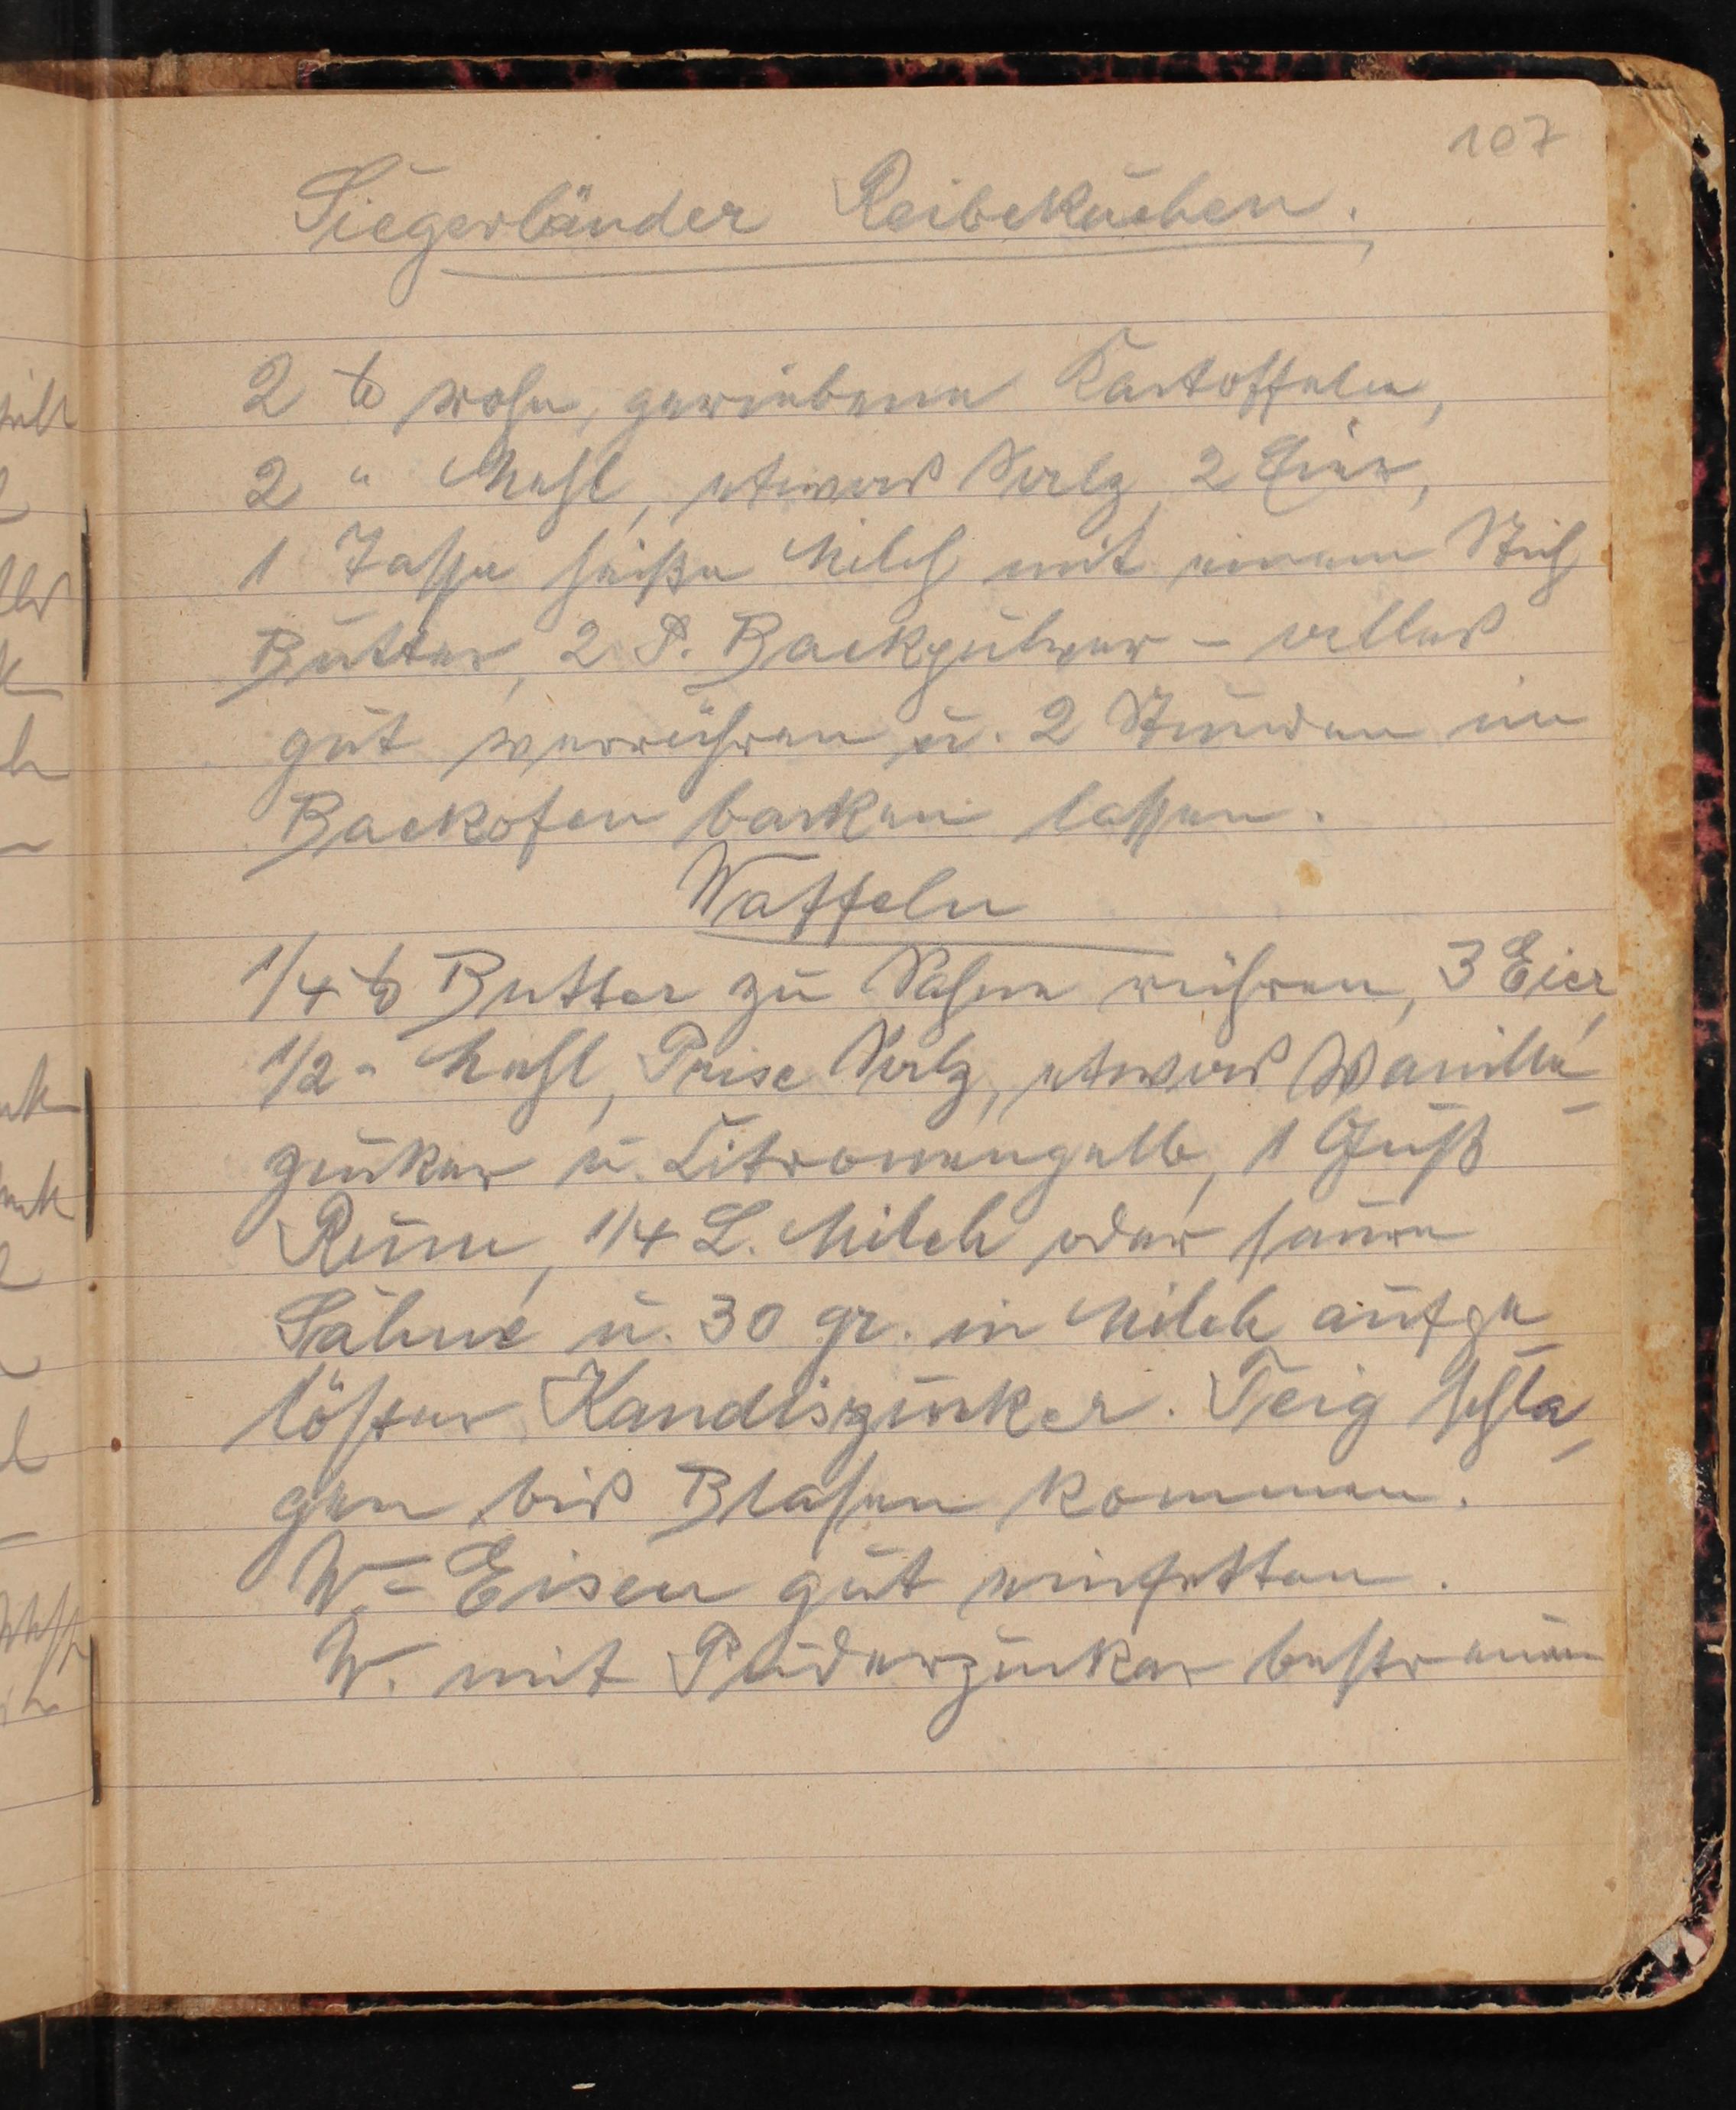 107
Siegerländer Reibekuchen.
2 ℔ rohe, geriebene Kartoffeln,
2 " Mehl, etwas Salz, 2 Eier,
1 Tasse heiße Milch mit einem Stich
Butter, 2 P. Backpulver - alles
gut verrühren u. 2 Stunden im
Backofen backen lassen.
Waffeln
1/4 ℔ Butter zu Sahne rühren, 3 Eier,
1/2 " Mehl, Prise Salz, etwas Vanille-
zucker u. Citronengelb, 1 Guß
Rum, 1/4 L. Milch oder saure
Sahne u. 30 gr. in Milch aufge-
löster Kandiszucker. Teig schla-
gen bis Blasen kommen.
W.-Eisen gut einfetten.
W. mit Puderzucker bestreuen